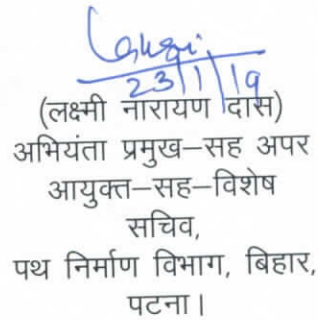 23/1/19
(लक्ष्मी नारायण दास)
अभियंता प्रमुख–सह अपर
आयुक्त–सह–विशेष
सचिव,
पथ निर्माण विभाग, बिहार,
पटना।